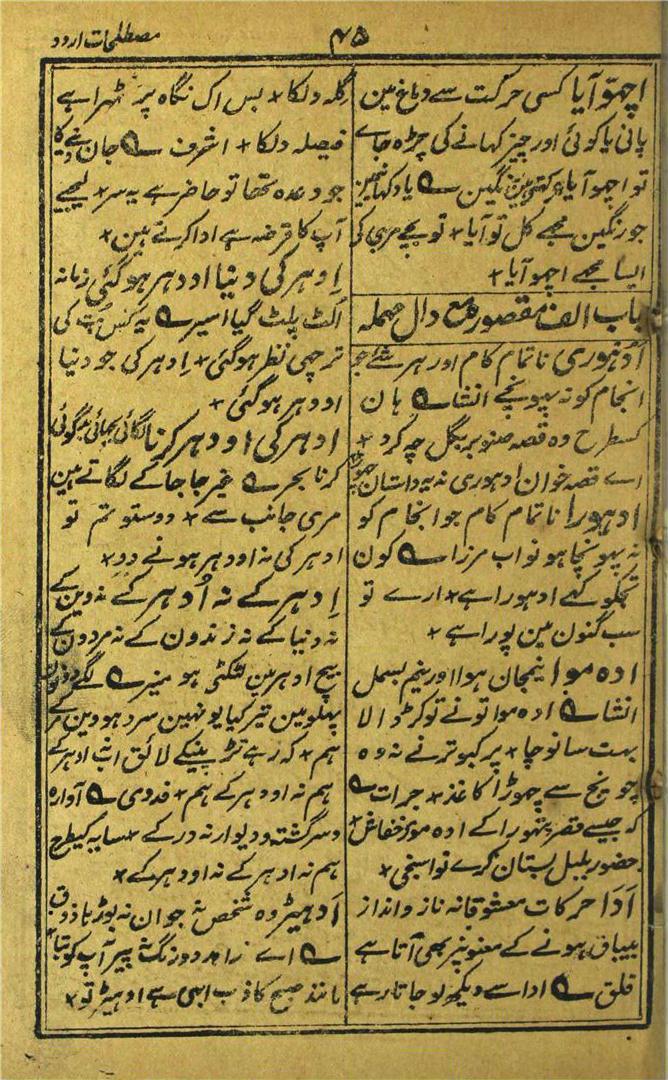 مصطلحات اردو
۴۵
اچھو آیا کسی حرکت سے دماغ مین
پانی یا کوئی اور چیز کھانے کی چڑہ جاے
تو اچھو آیا کہتے ہین رنگین ؎ یاد کہا نہین
جو رنگین مجھے کل تو آیا * تو مجھے مری کی
ایسا مجھے اچھو آیا *
باب الف مقصورہ مع دال مہملہ
ادہوری ناتمام کام اور ہر شئے جو
انجام کو نہ پہونچے انشا ؎ ہان
کسطرح وہ قصہ صنوبر بگل چہ کرد *
اے قصہ خوان ادہوری نہ یہ داستان
ادہورا ناتمام کام جو انجام کو
نہ پہونچا ہو نواب مرزا ؎ کون
تجکو کہے ادہورا ہے * ارے تو
سب گنون مین پورا ہے *
ادہ موا نیمجان ہوا اور نیم بسمل
انشا ؎ ادہ موا تو نے تو کر ڈالا
بہت سا نوچا * پر کبوتر نے نہ وہ
چونچ سے چھوڑا کاغذ * جرات ؎
کہ جیسے قصر پتھورا کے ادہ موئے خفاش *
حضور بلبل بستان کرے نواسنجی *
ادا حرکات معشوقانہ ناز و انداز
بیباق ہونے کے معنو نپر بھی آتا ہے
قلق ؎ ادا سے دیکھ لو جاتا رہے
گلہ دلکا * بس اک نگاہ پر ٹھہرا ہے
فیصلہ دلکا * اشرف ؎ جان دینے کا
جو وعدہ تھا تو حاضر ہے یہ سر * لیجیے
آپ کا قرضہ ہے ادا کرتے ہین *
اِدہر کی دنیا اودہر ہو گئی زمانہ
الٹ پلٹ گیا اسیر ؎ یہ کس بت کی
ترچھی نظر ہو گئی * اِدہر کی جو دنیا
اودہر ہو گئی *
ادہر کی اودہر کرنا لگائی بجھائی
کرنا بحر ؎ غیر جا جا کے لگاتے ہین
مری جانب سے * دوستو تم تو
ادہر کی نہ اودہر ہونے دو *
اِدہر کے نہ اُدہر کے نہ دین کے
نہ دنیا کے نہ زندون کے نہ مردون کے
بیچ ادہر مین لٹکتی ہو میر ؎ لگے
پہلو مین تیر کیا یو نہین سرد ہووین
ہم * کہ رہے تڑپنیکے لائق اب ادہر کے
ہم نہ اودہر کے ہم * فدوی ؎ آوارہ
و سرگشتہ و دیوار نہ در کے * سایہ کیطرح
ہم نہ ادہر کے نہ اودہر کے *
اَدہیڑ وہ شخص جو جوان نہ بوڑہا ذوق
؎ اے زاہد دورنگ نہ پیر آپ کو بتا *
مانند صبح کاذب ابھی ہے ادہیڑ تو *